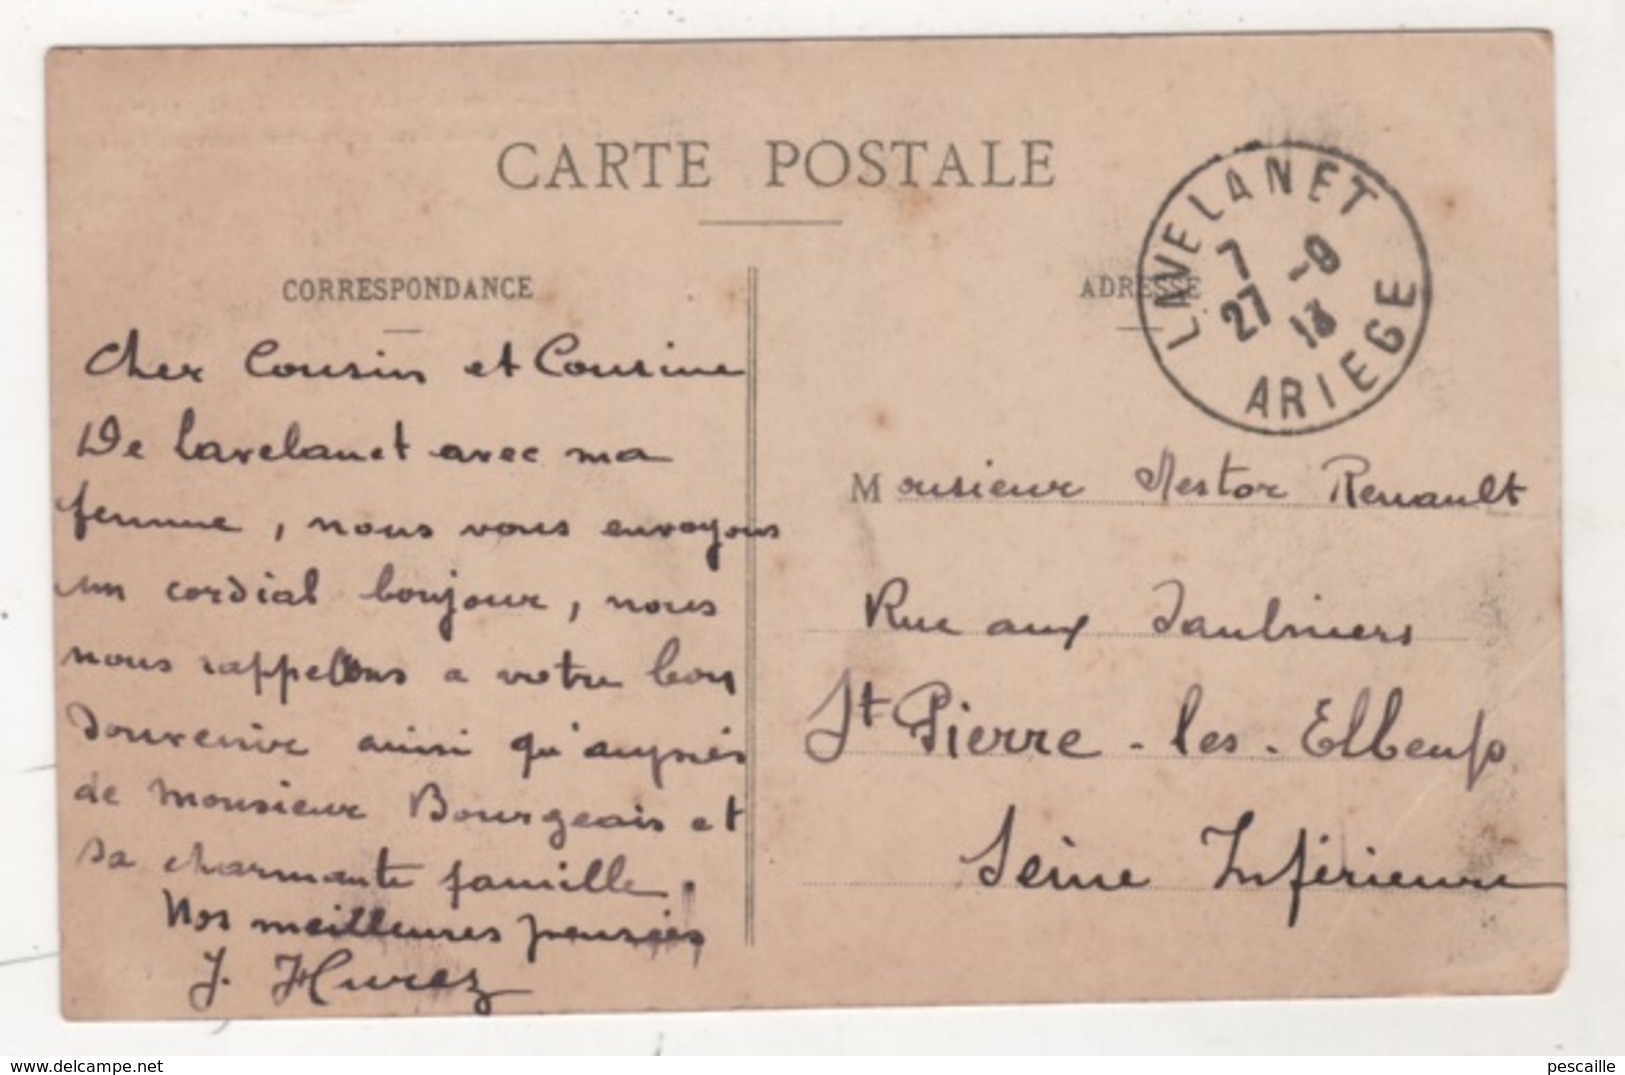 CARTE POSTALE
CORRESPONDANCE
Cher Cousin et Cousine
De Lavelanet avec ma
femme, nous vous envoyons
un cordial bonjour, nous
nous rappelons a votre bon
souvenir ainsi qu'auprès
de Monsieur Bourgeois et
sa charmante famille.
Nos meilleures pensées
J. Hurez
LAVELANET
7 -9
27 13
ARIEGE
ADRESSE
Monsieur Nestor Renault
Rue aux
St Pierre-les-Elbeuf
Seine Inférieure
www.delcampe.net
pescaille